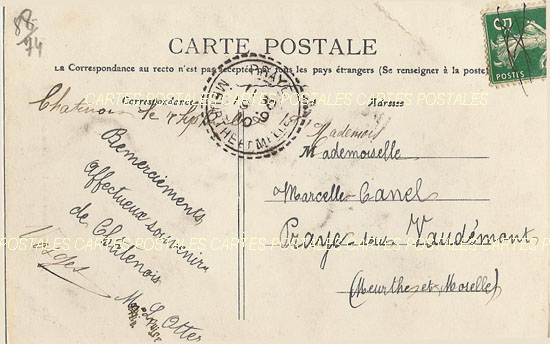 88
74
CARTE POSTALE
La Correspondance au recto n'est pas acceptée par tous les pays étrangers (Se renseigner à la poste)
Correspondance
Adresse
POSTES
PRAYE
MEURTHE ET MOSELLE
CARTES POSTALES CARTES POSTALES CARTES POSTALES
Chatenois le
Remerciements
affectueux souvenir
de Châtenois
Vosges
M. Louise Otter
Mademoiselle
Marcelle Canel
Praye sur Vaudémont
(Meurthe et Moselle)
POSTALES CARTES POSTALES CARTES POSTALES CARTES POSTALES